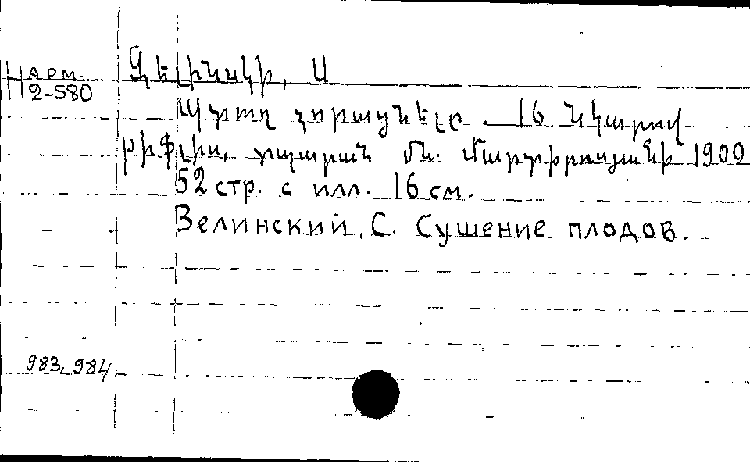 Զելինսկի, Ս
Н арм.
2-580
Պտուղ չորացնելը. 16 նկարով
Թիֆլիս, տպարան Մն. Մարտիրոսյանի 1900
52 стр. с илл. 16 см.
Зелинский, С. Сушение плодов.
983, 984